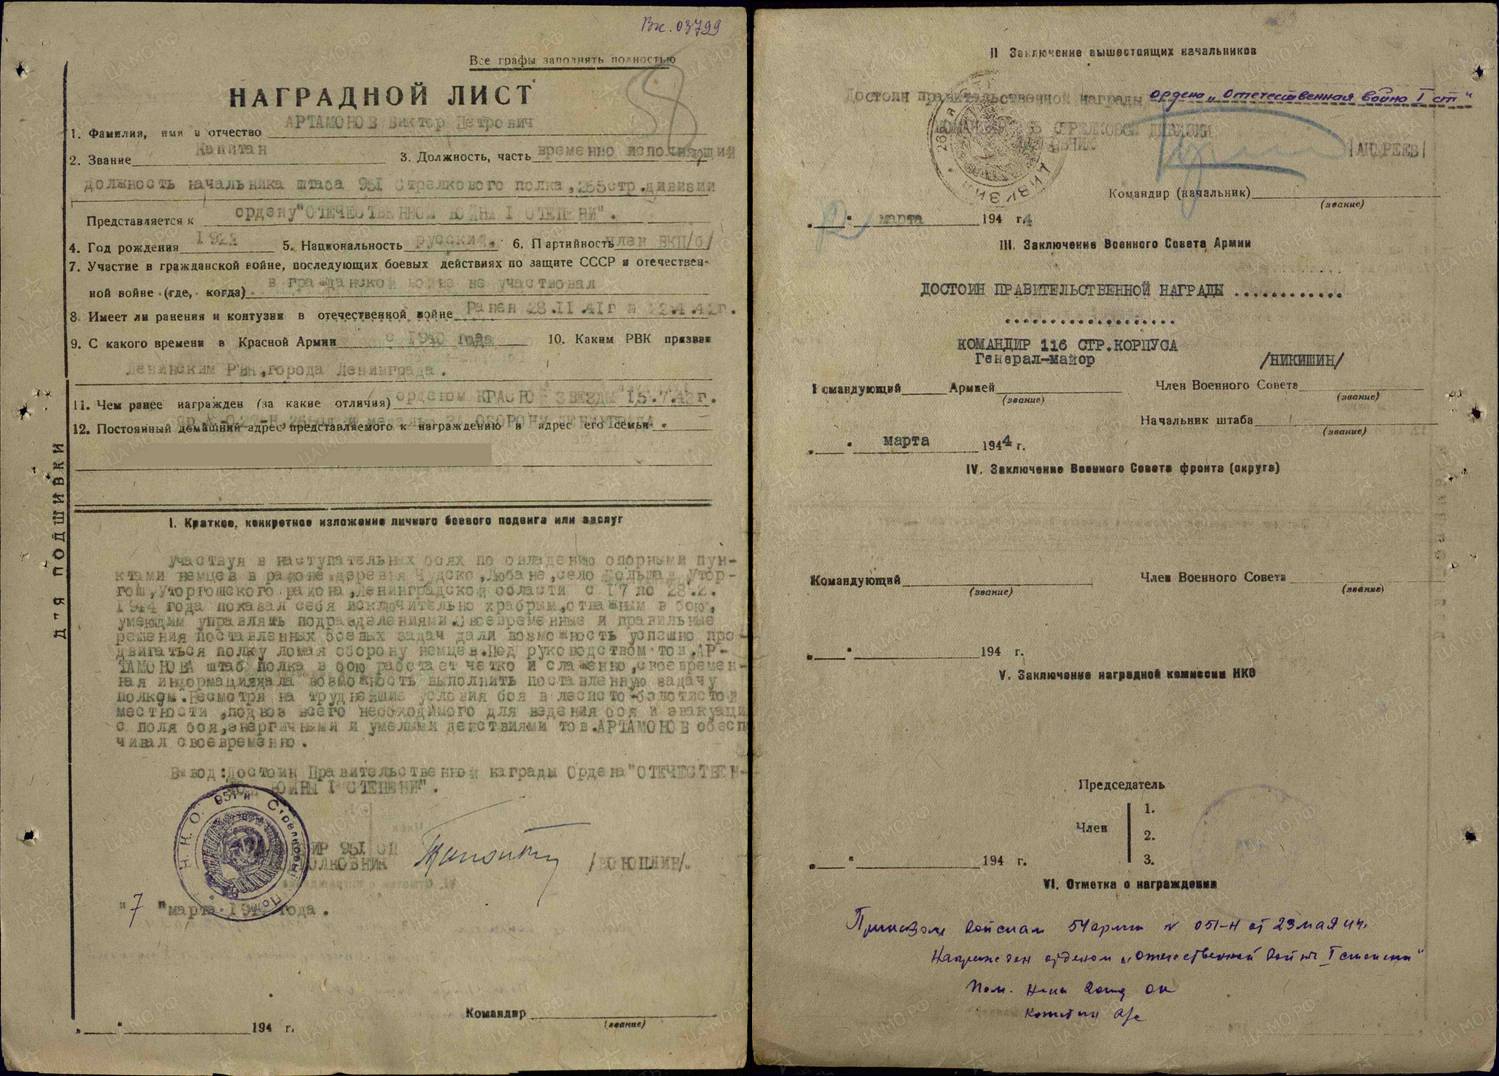 Вх. 03799
Все графы заполнять полностью
58
НАГРАДНОЙ ЛИСТ
1. Фамилия, имя и отчество АРТАМОНОВ Виктор Петрович
2. Звание Капитан 3. Должность, часть временно исполняющий
должность начальника штаба 951 Стрелкового полка,265стр.дивизии
Представляется к ордену"ОТЕЧЕСТВЕННОЙ ВОЙНЫ I СТЕПЕНИ".
4. Год рождения 5. Национальность русский. 6. Партийность член ВКП/б/
7. Участие в гражданской войне, последующих боевых действиях по защите СССР и отечествен-
ной войне (где, когда) в гражданской войне не участвовал
8. Имеет ли ранения и контузии в отечественной войне Ранен 28.11.41г и
9. С какого времени в Красной Армии с 1940 года 10. Каким РВК призван
Ленинским РВК,города Ленинграда.
11. Чем ранее награжден (за какие отличия) орденом КРАСНОЙ ЗВЕЗДЫ
ЗА ОБОРОНУ ЛЕНИНГРАДА
12. Постоянный домашний адрес представляемого к награждению и адрес его семьи
ДЛЯ ПОДШИВКИ
I. Краткое, конкретное изложение личного боевого подвига или заслуг
Участвуя в наступательных боях по овладению опорными пун-
ктами немцев в районе:деревня Чудско,Любане,село Большая Утор-
гош,Уторгошского района,Ленинградской области с 17 по 28.2.
1944 года показал себя исключительно храбрым,отважным в бою,
умеющим управлять подразделениями.Своевременные и правильные
решения поставленных боевых задач дали возможность успешно про-
двигаться полку ломая оборону немцев.Под руководством тов.АР-
ТАМОНОВА штаб полка в бою работает четко и слаженно,своевремен-
ная информация дала возможность выполнить поставленную задачу
полком.Несмотря на труднейшие условия боя в лесисто-болотистой
местности,подвоз всего необходимого для ведения боя и эвакуаци
с поля боя,энергичными и умелыми действиями тов.АРТАМОНОВ обесп
чивал своевременно.
Вывод:Достоин Правительственной награды Ордена"ОТЕЧЕСТВЕН-
ВОЙНЫ I СТЕПЕНИ".
Н.К.О. 951-й Стрелковый Полк
ИР 951 СП
ОЛКОВНИК
"7" марта 194 года.
Командир
(звание)
" " 194 г.
II Заключение вышестоящих начальников
Достоин правительственной награды ордена „Отечественная война I ст"
КОМАНДИР 265 СТРЕЛКОВОЙ ДИВИЗИИ
/АНДРЕЕВ/
Командир (начальник)
(звание)
" марта 1944 г.
III. Заключение Военного Совета Армии
ДОСТОИН ПРАВИТЕЛЬСТВЕННОЙ НАГРАДЫ ............
..................
КОМАНДИР 116 СТР.КОРПУСА
Генерал-майор /НИКИШИН/
Командующий Армией Член Военного Совета
(звание) (звание)
Начальник штаба
(звание)
" " марта 1944 г.
IV. Заключение Военного Совета фронта (округа)
Командующий Член Военного Совета
(звание) (звание)
" " 194 г.
V. Заключение наградной комиссии НКО
Председатель
Член
1.
2.
3.
" " 194 г.
VI. Отметка о награждении
Приказом войскам 54 армии № 051-Н от 23 мая 44г.
Награжден орденом „Отечественной войны I степени"
Пом. Нач. ок
капитан